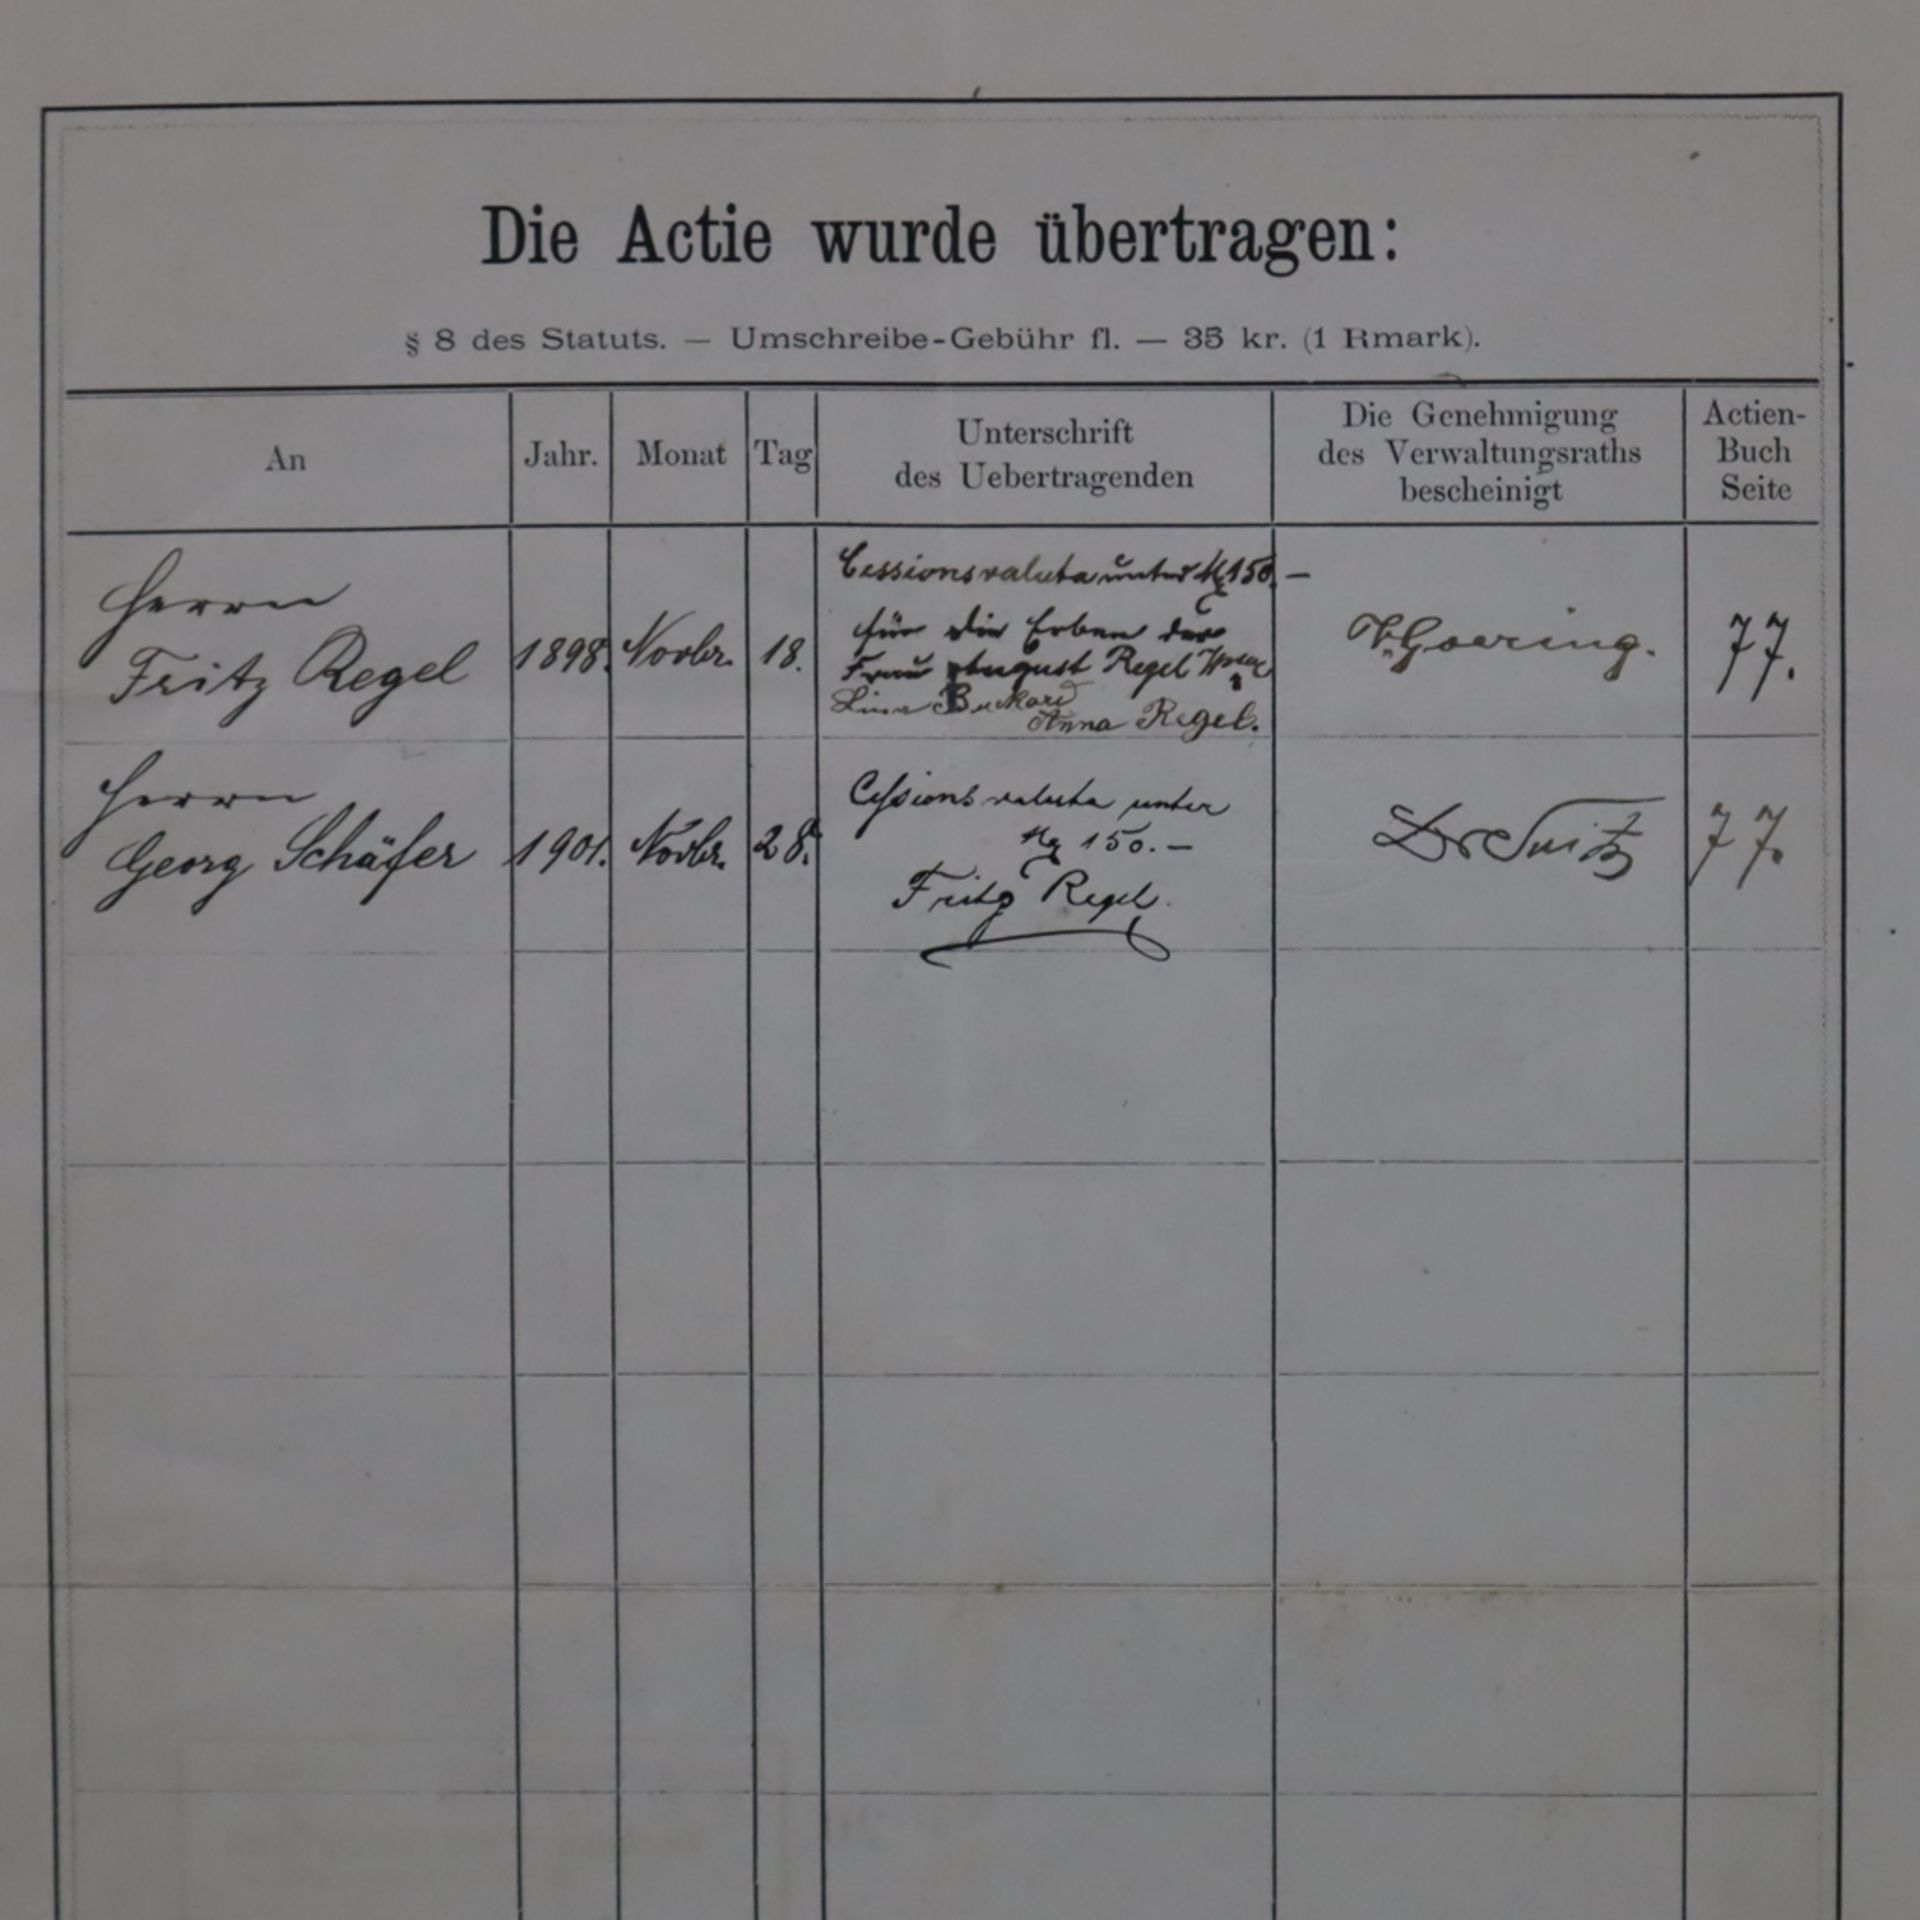 Die Actie wurde übertragen:
§ 8 des Statuts. — Umschreibe-Gebühr fl. — 35 kr. (1 Rmark).
An
Jahr.
Monat
Tag
Unterschrift
des Uebertragenden
Die Genehmigung
des Verwaltungsraths
bescheinigt
Actien-
Buch
Seite
Herrn
Fritz Regel
1898.
Novbr.
18.
Cessionsvaluta unter M 150.—
für die Erben der
Frau August Regel
Lina
Anna Regel.
Goering.
77.
Herrn
Georg Schäfer
1901.
Novbr.
28.
Cessionsvaluta unter
150.—
Fritz Regel.
Dr
77.